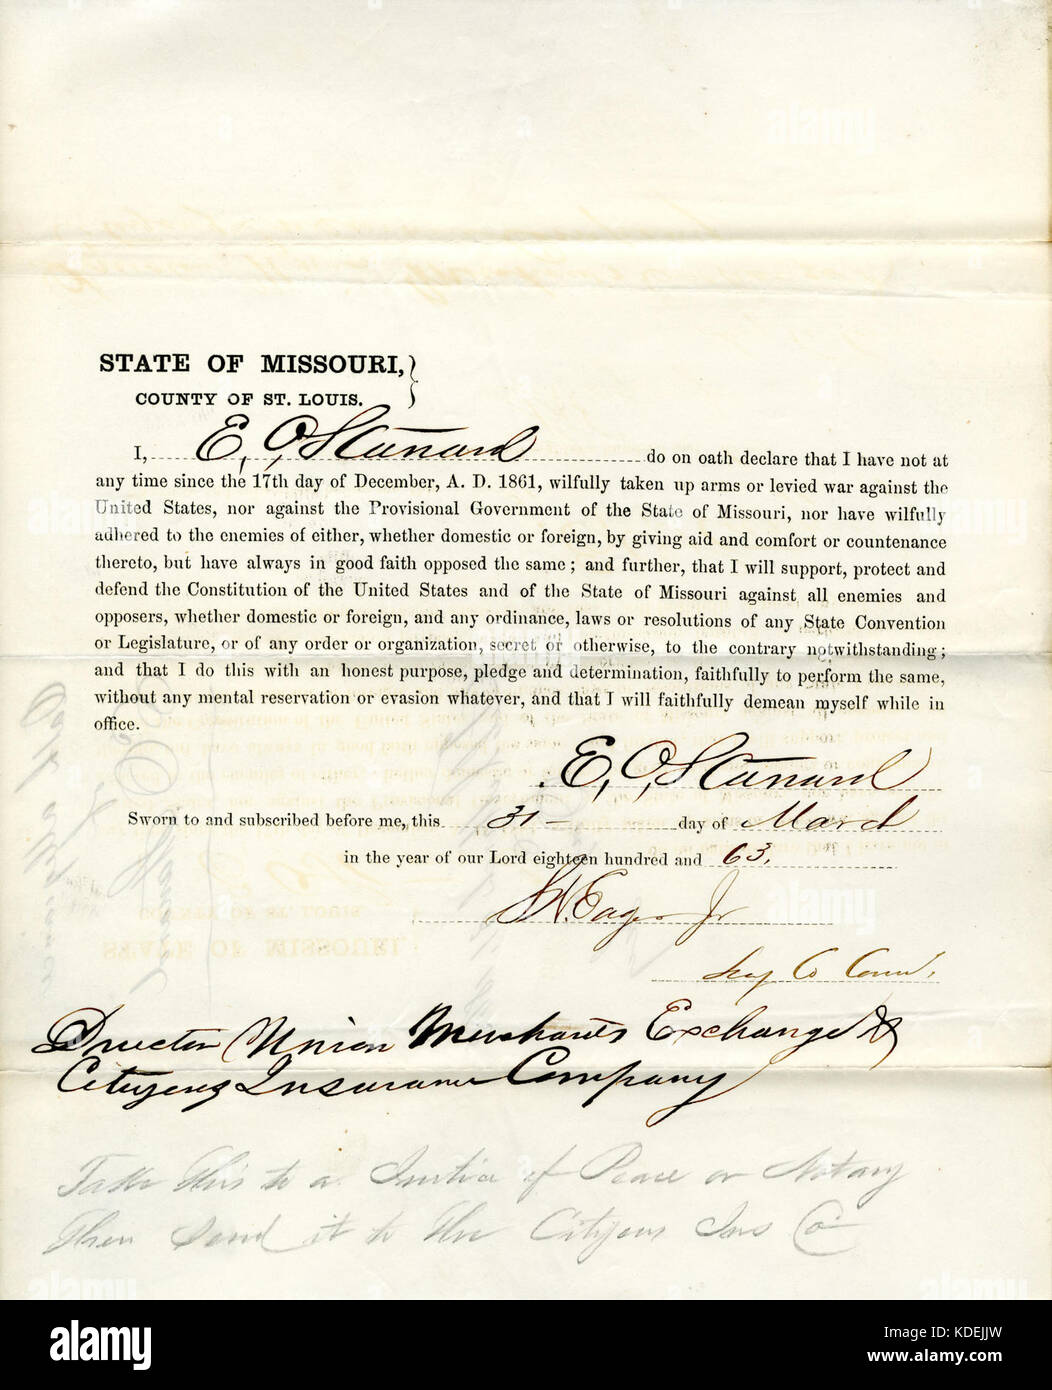 STATE OF MISSOURI,
COUNTY OF ST. LOUIS.
I, E. O. Stanard do on oath declare that I have not at
any time since the 17th day of December, A. D. 1861, wilfully taken up arms or levied war against the
United States, nor against the Provisional Government of the State of Missouri, nor have wilfully
adhered to the enemies of either, whether domestic or foreign, by giving aid and comfort or countenance
thereto, but have always in good faith opposed the same; and further, that I will support, protect and
defend the Constitution of the United States and of the State of Missouri against all enemies and
opposers, whether domestic or foreign, and any ordinance, laws or resolutions of any State Convention
or Legislature, or of any order or organization, secret or otherwise, to the contrary notwithstanding;
and that I do this with an honest purpose, pledge and determination, faithfully to perform the same,
without any mental reservation or evasion whatever, and that I will faithfully demean myself while in
office.
E. O. Stanard
Sworn to and subscribed before me, this 31 — day of March
in the year of our Lord eighteen hundred and 63.
Eager Jr
Co
Director Union Merchants Exchange &
Citizens Insurance Company
Take this to a Justice of Peace or Notary
then send it to the Citizens Ins Co
alamy
Image ID: KDEJJW
www.alamy.com